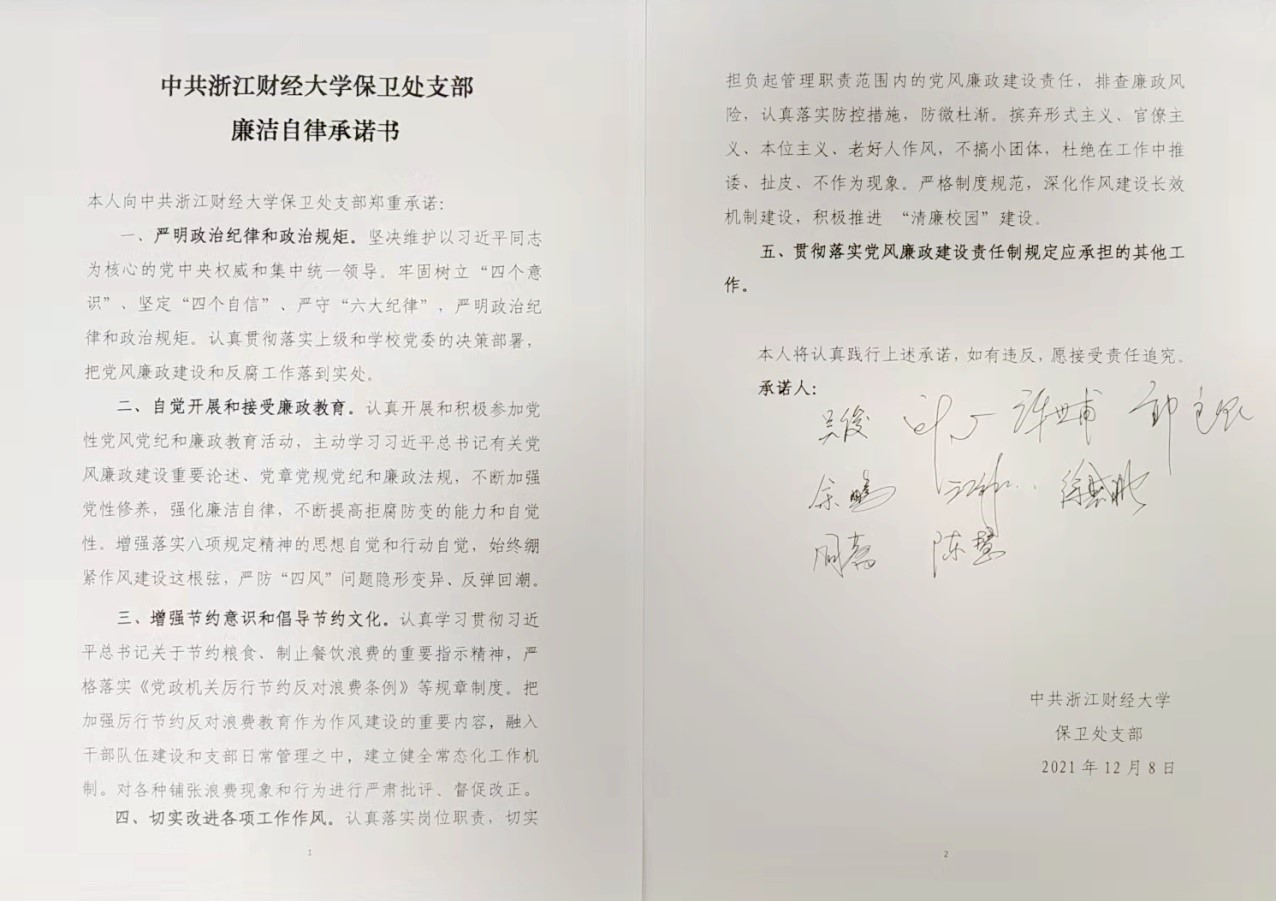 中共浙江财经大学保卫处支部
廉洁自律承诺书
本人向中共浙江财经大学保卫处支部郑重承诺：
一、严明政治纪律和政治规矩。坚决维护以习近平同志
为核心的党中央权威和集中统一领导。牢固树立“四个意
识”、坚定“四个自信”、严守“六大纪律”，严明政治纪
律和政治规矩。认真贯彻落实上级和学校党委的决策部署，
把党风廉政建设和反腐工作落到实处。
二、自觉开展和接受廉政教育。认真开展和积极参加党
性党风党纪和廉政教育活动，主动学习习近平总书记有关党
风廉政建设重要论述、党章党规党纪和廉政法规，不断加强
党性修养，强化廉洁自律，不断提高拒腐防变的能力和自觉
性。增强落实八项规定精神的思想自觉和行动自觉，始终绷
紧作风建设这根弦，严防“四风”问题隐形变异、反弹回潮。
三、增强节约意识和倡导节约文化。认真学习贯彻习近
平总书记关于节约粮食、制止餐饮浪费的重要指示精神，严
格落实《党政机关厉行节约反对浪费条例》等规章制度。把
加强厉行节约反对浪费教育作为作风建设的重要内容，融入
干部队伍建设和支部日常管理之中，建立健全常态化工作机
制。对各种铺张浪费现象和行为进行严肃批评、督促改正。
四、切实改进各项工作作风。认真落实岗位职责，切实
1
担负起管理职责范围内的党风廉政建设责任，排查廉政风
险，认真落实防控措施，防微杜渐。摈弃形式主义、官僚主
义、本位主义、老好人作风，不搞小团体，杜绝在工作中推
诿、扯皮、不作为现象。严格制度规范，深化作风建设长效
机制建设，积极推进 “清廉校园”建设。
五、贯彻落实党风廉政建设责任制规定应承担的其他工
作。
本人将认真践行上述承诺，如有违反，愿接受责任追究。
承诺人：
吴俊
余鹏
陈慧
中共浙江财经大学
保卫处支部
2021 年 12 月 8 日
2